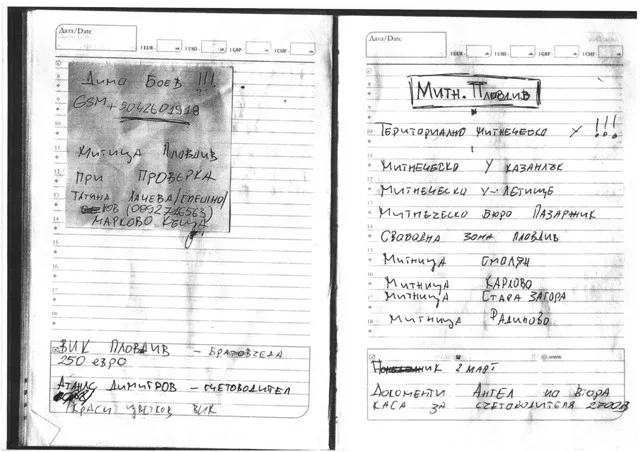 Дата/Date
1 EUR 1 USD 1 GBP 1 CHF
Дима Боев !!!
GSM
Митица Пловдив
при проверка
Лачева/спешно/
Марково къща
ВИК Пловдив – братовчеда
250 евро
Атанас Димитров – счетоводител
Краси Цветков ВИК
Дата/Date
1 EUR 1 USD 1 GBP 1 CHF
Митн. Пловдив
Териториално митническо у !!!
Митническо у Казанлък
Митническо у-летище
Митническо бюро Пазаржик
Свободна зона Пловдив
Митница Смолян
Митница Карлово
Митница Стара Загора
Митница Радиново
2 март
Документи Ангел по втора
каса за счетоводителя